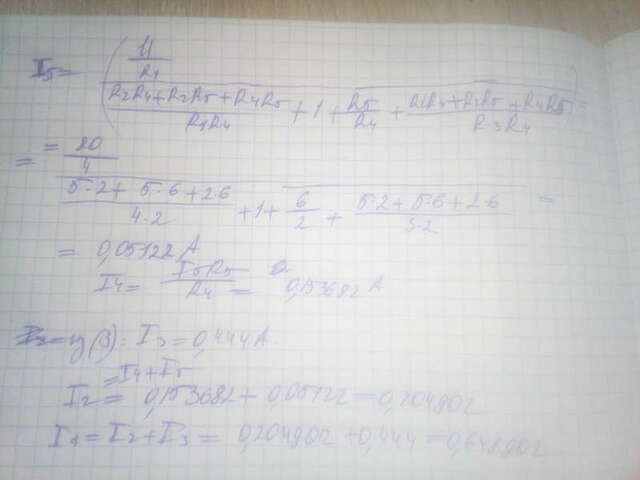 I₅ = ( (U/R₁) / ((R₂R₄+R₂R₅+R₄R₅)/(R₁R₄) + 1 + R₅/R₄ + (R₂R₄+R₂R₅+R₄R₅)/(R₃R₄)) ) =
= = (20/4) / ((5·2+5·6+2·6)/(4·2) + 1 + 6/2 + (5·2+5·6+2·6)/(3·2)) =
= 0,05122 A
I₄ = I₅R₅/R₄ = 0,153682 A
из (3): I₃ = 0,444 A.
I₂ = I₄+I₅ = 0,153682 + 0,05122 = 0,204902
I₁ = I₂ + I₃ = 0,204902 + 0,444 = 0,648902